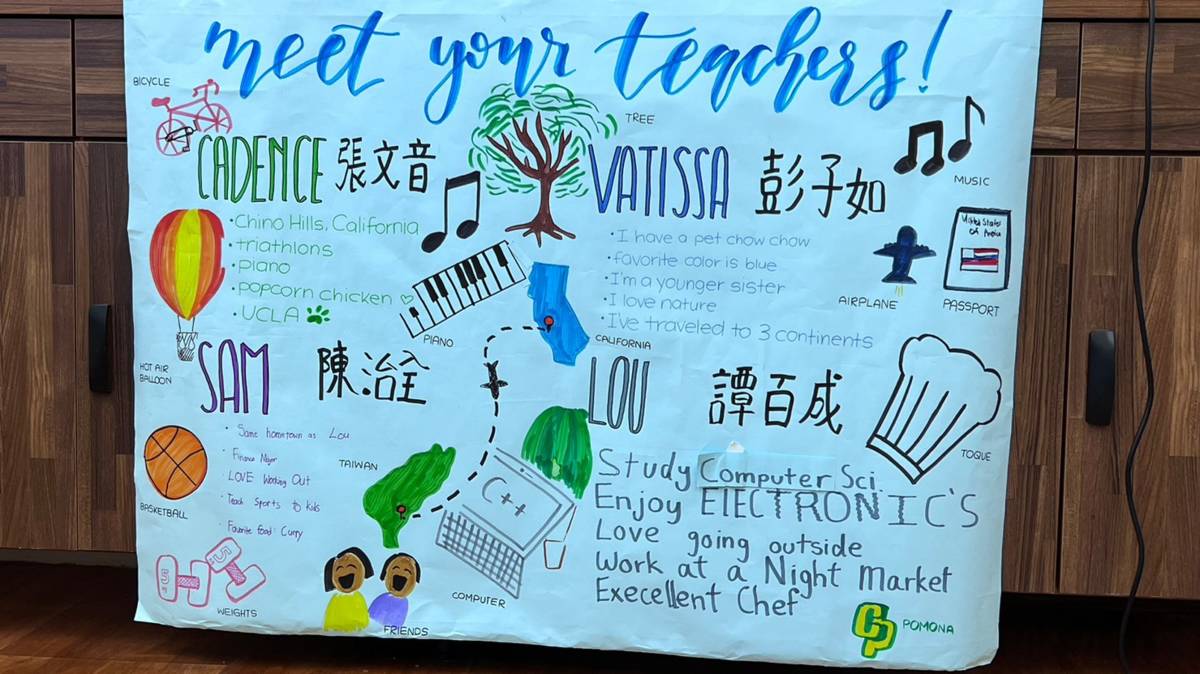 meet your teachers!
BICYCLE
TREE
CADENCE 張文音
• Chino Hills, California
• triathlons
• piano
• popcorn chicken ♡
• UCLA
VATISSA 彭子如
• I have a pet chow chow
• favorite color is blue
• I'm a younger sister
• I love nature
• I've traveled to 3 continents
MUSIC
United States
of
AIRPLANE
PASSPORT
PIANO
CALIFORNIA
HOT AIR
BALLOON
SAM 陳治全
• Same hometown as Lou
• Finance Major
• LOVE Working Out
• Teach Sports to kids
• Favorite food: Curry
TAIWAN
BASKETBALL
WEIGHTS
FRIENDS
LOU 譚百成
Study Computer Sci.
Enjoy ElECTRONIC'S
Love going outside
Work at a Night Market
Execellent Chef
TOQUE
C++
COMPUTER
CP
POMONA